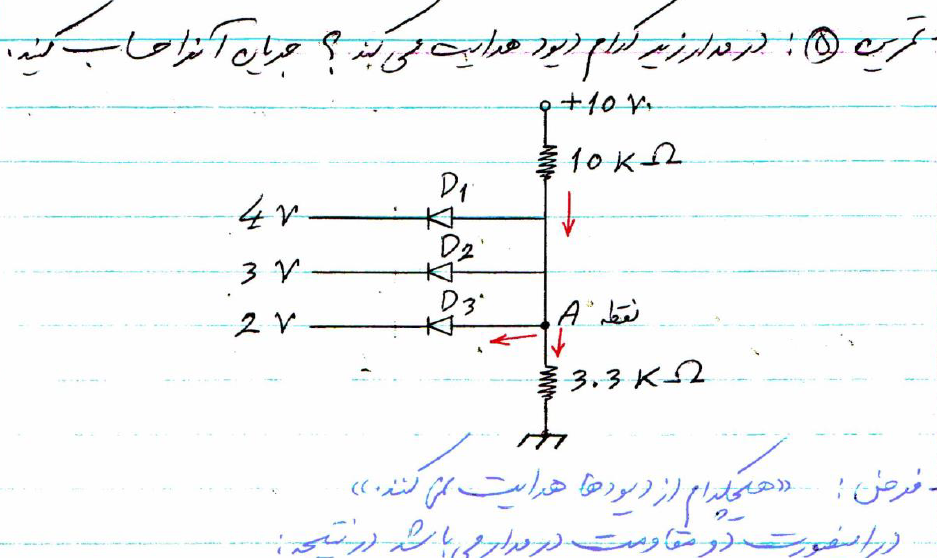 تمرین ۵ : در مدار زیر کدام دیود هدایت می کند ؟ جریان آنرا حساب کنید.
+10 V.
10 K Ω
D1
4 V
D2
3 V
D3
2 V
نقطه A
3.3 K Ω
- فرض : «هیچکدام از دیودها هدایت نمی کنند.»
در اینصورت دو مقاومت در مدار می باشد در نتیجه :